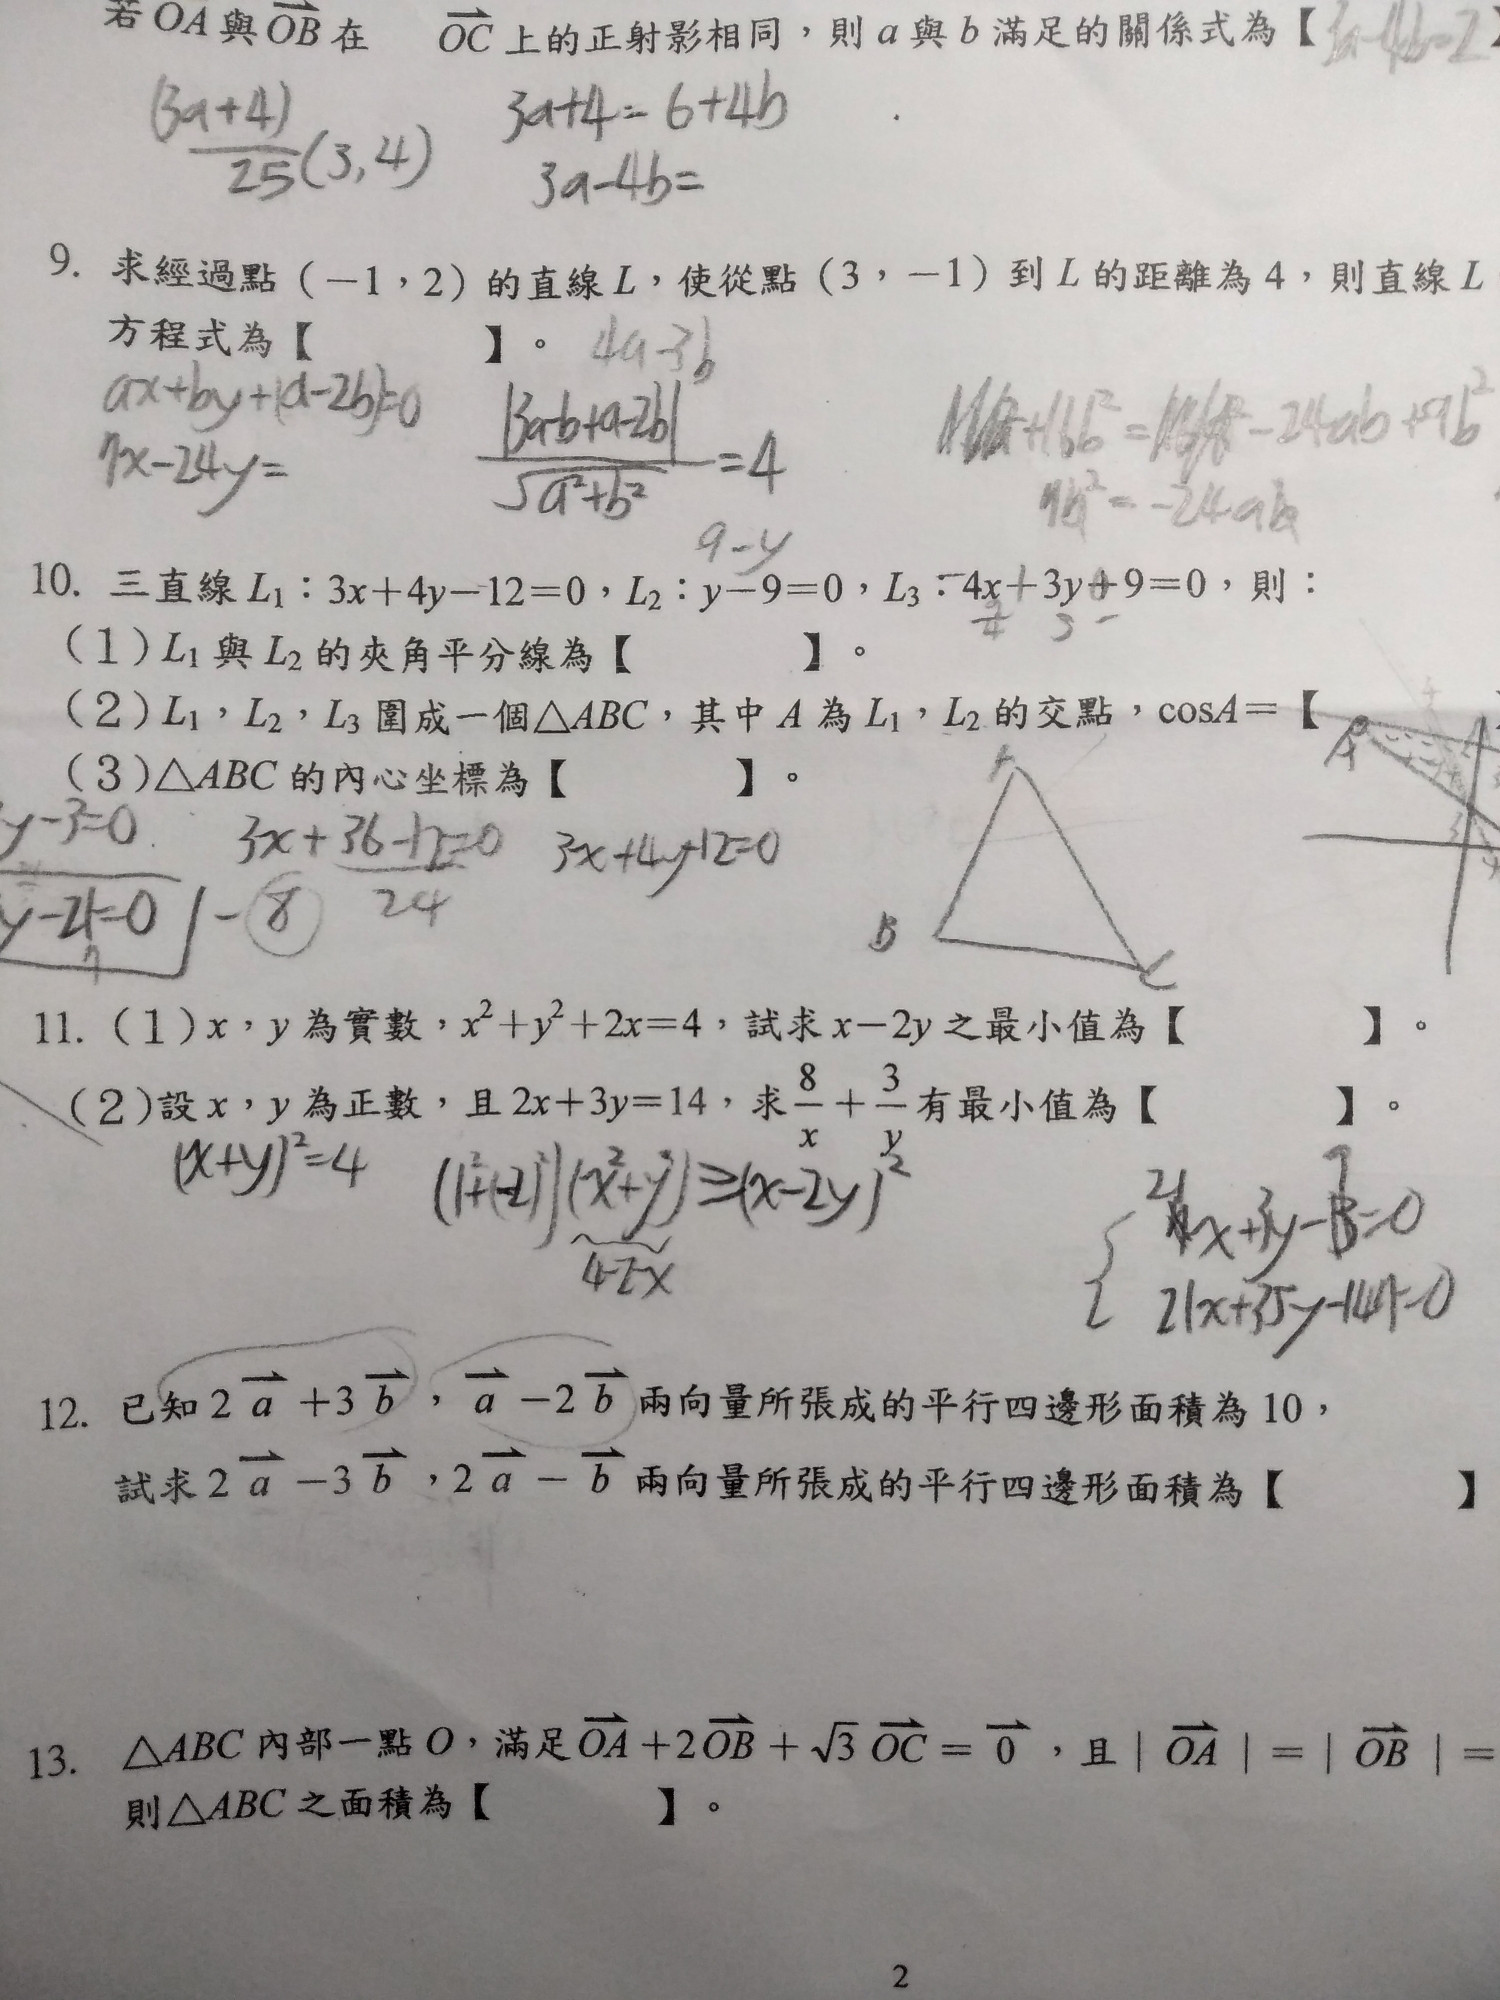 若 OA 與 OB 在 OC 上的正射影相同，則 a 與 b 滿足的關係式為【3a-4b=2】
(3a+4)/25 (3,4) 3a+4=6+4b
3a-4b=
9. 求經過點（−1，2）的直線 L，使從點（3，−1）到 L 的距離為 4，則直線 L
方程式為【 】。 4a-3b
ax+by+(a-2b)=0 |3a-b+a-2b|/√a²+b² =4 +16b²= -24ab+9b²
7x-24y= 7b²=-24ab
9-y
10. 三直線 L₁：3x+4y−12=0，L₂：y−9=0，L₃：4x+3y+9=0，則：
（1）L₁ 與 L₂ 的夾角平分線為【 】。
（2）L₁，L₂，L₃ 圍成一個△ABC，其中 A 為 L₁，L₂ 的交點，cosA=【
（3）△ABC 的內心坐標為【 】。
A
y-3=0 3x+36-12=0 3x+4y-12=0
-8 24
B C
11.（1）x，y 為實數，x²+y²+2x=4，試求 x−2y 之最小值為【 】。
（2）設 x，y 為正數，且 2x+3y=14，求 8/x + 3/y 有最小值為【 】。
(x+y)²=4 (1²+(-2)²)(x²+y²)≥(x-2y)²
4-2x
21x+35y-141=0
12. 已知 2 a +3 b ， a −2 b 兩向量所張成的平行四邊形面積為 10，
試求 2 a −3 b ，2 a − b 兩向量所張成的平行四邊形面積為【 】
13. △ABC 內部一點 O，滿足 OA +2 OB + √3 OC = 0 ，且 | OA | = | OB | =
則△ABC 之面積為【 】。
2